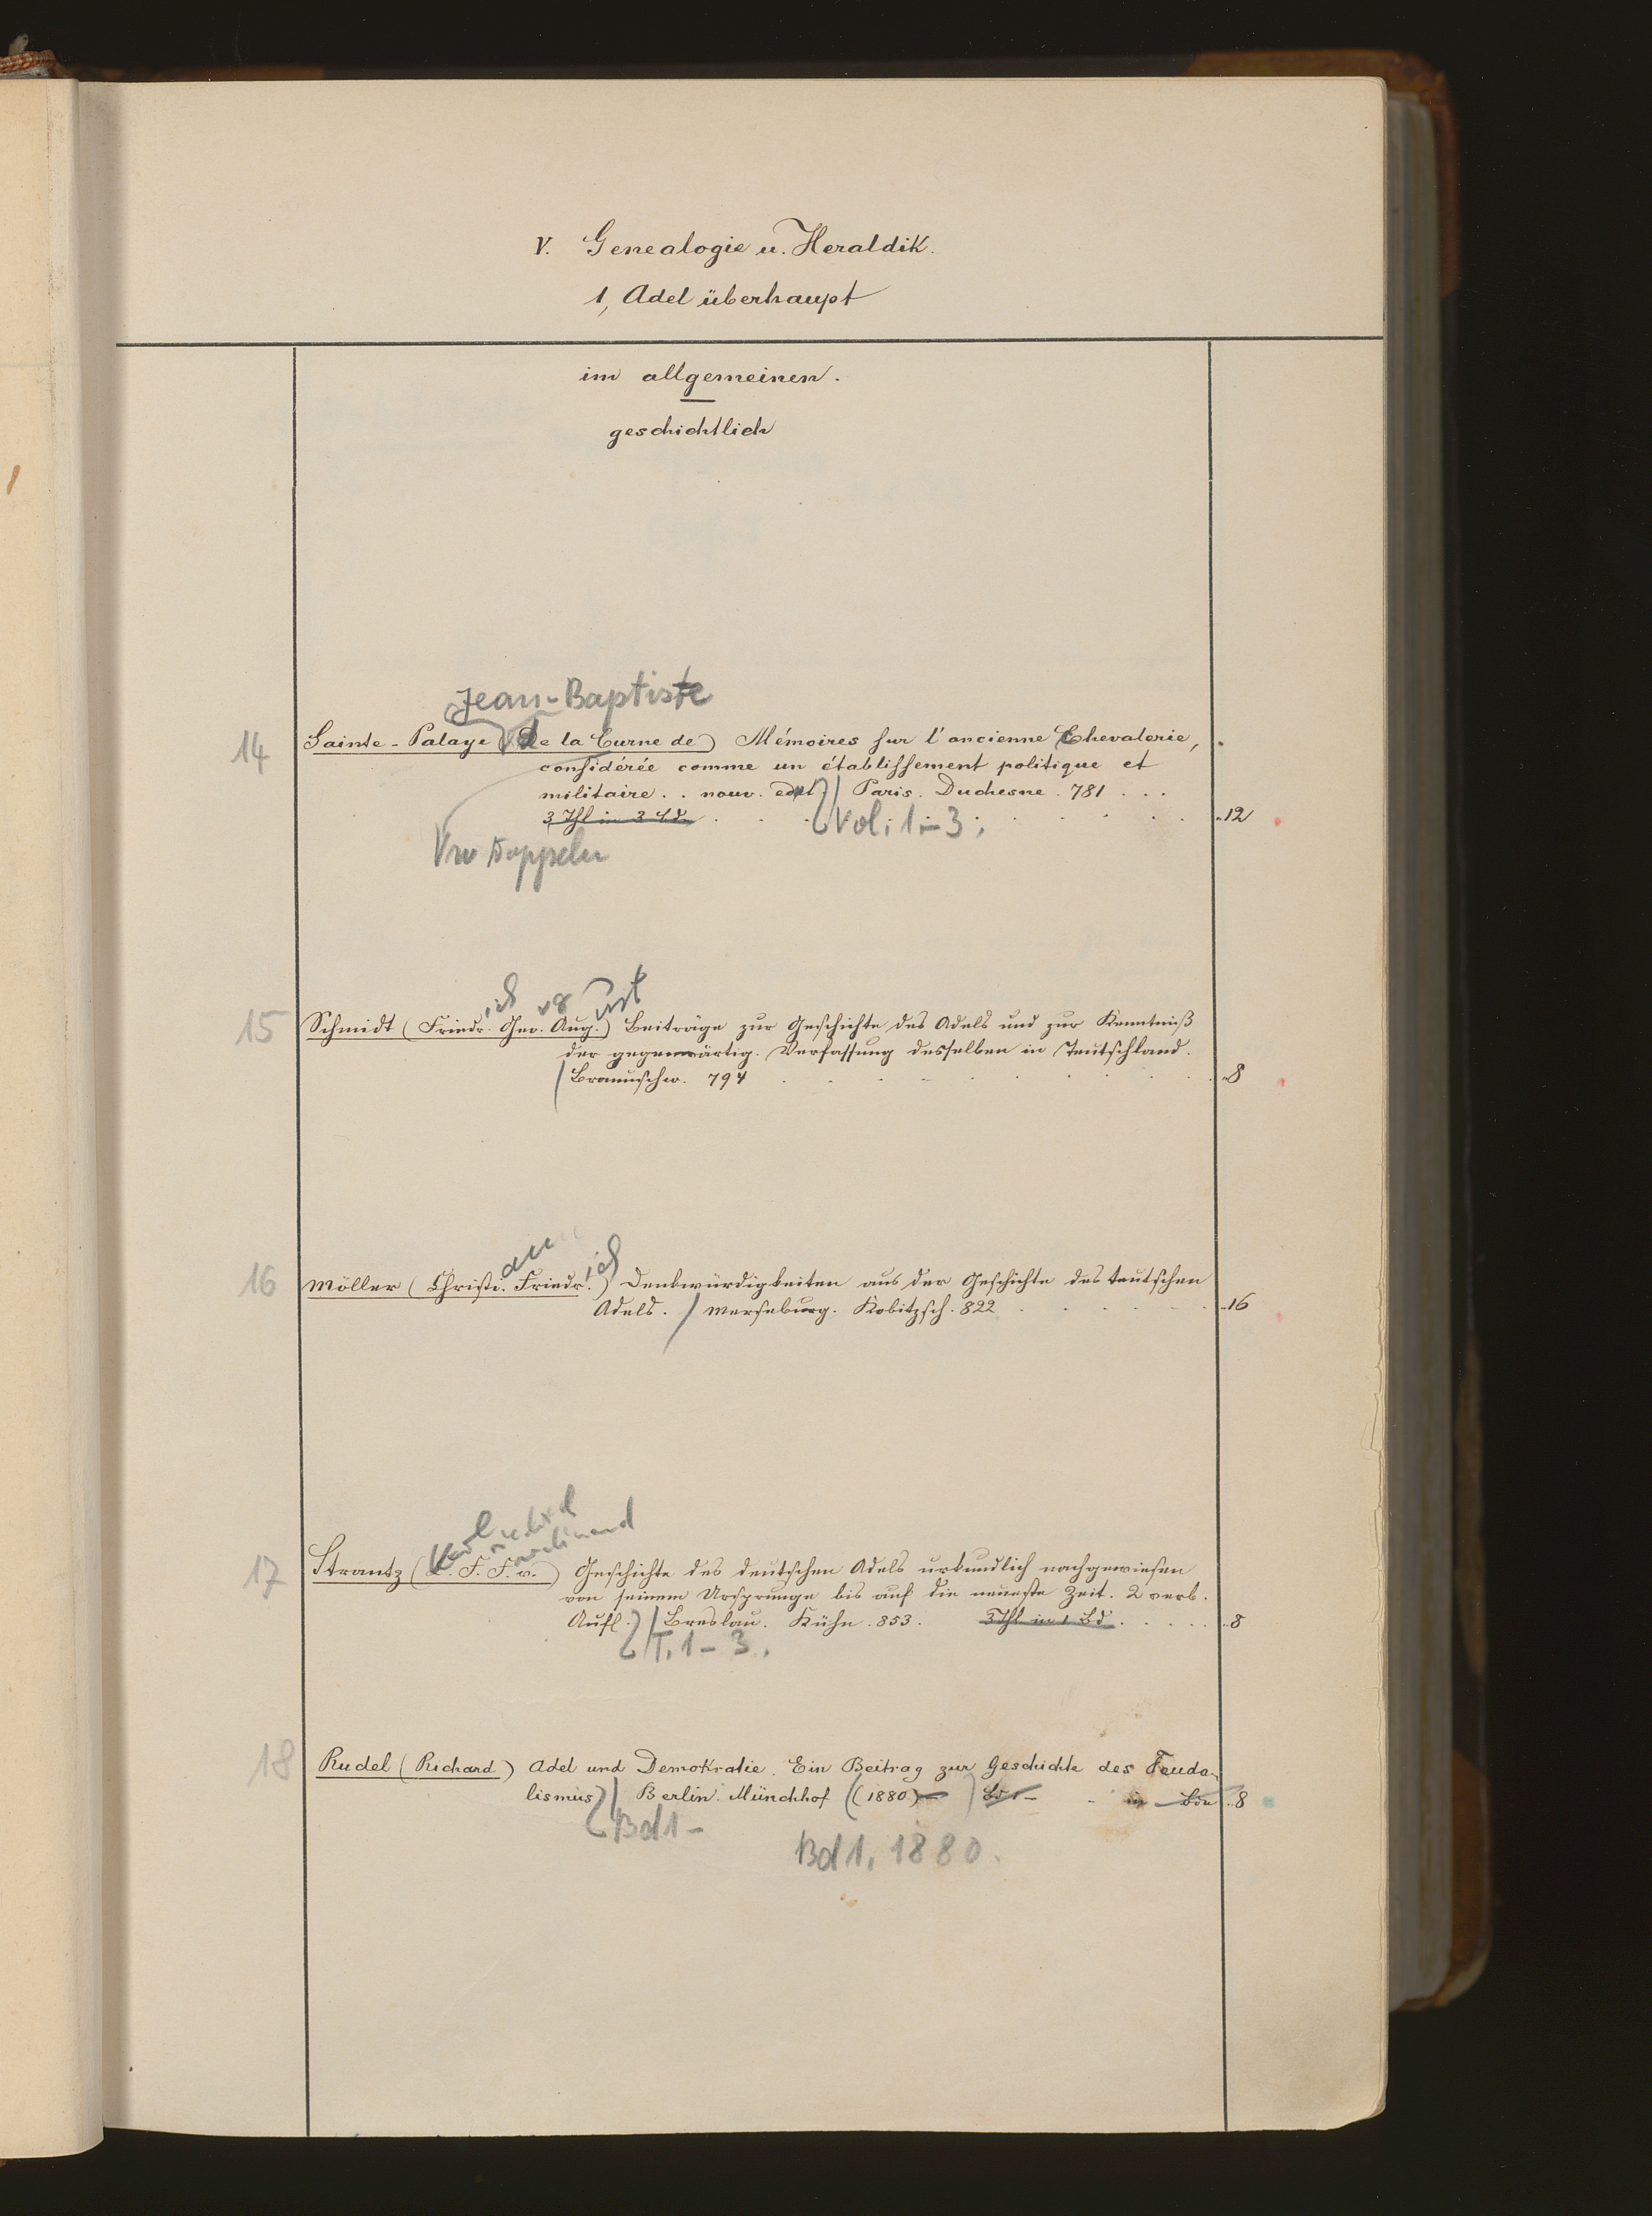 V. Genealogie u. Heraldik.
1, Adel überhaupt
im allgemeinen.
geschichtlich
Jean-Baptiste
14 Sainte-Palaye (De la Curne de) Mémoires sur l'ancienne Chevalerie,
considérée comme un établissement politique et
militaire . . nouv. edit. / Paris. Duchesne. 781 . . .
3 Thl in 3 Bd. Vol. 1-3. 12
15 Schmidt (Friedr. Geo. Aug.) Beiträge zur Geschichte des Adels und zur Kenntniß
der gegenwärtig. Verfassung desselben in Teutschland.
/ Braunschw. 794 8
ich
16 Möller (Christi. Friedr.) Denkwürdigkeiten aus der Geschichte des teutschen
Adels. / Merseburg. Kobitzsch. 822 16
Karl ferdinand
17 Strantz (K. F. F. v.) Geschichte des deutschen Adels urkundlich nachgewiesen
von seinem Ursprunge bis auf die neueste Zeit. 2 verb.
Aufl. / Breslau. Kühn. 853. 3 Thl in 1 Bd. 8
T. 1-3.
18 Rudel (Richard) Adel und Demokratie. Ein Beitrag zur Geschichte des Feuda-
lismus / Berlin. Münchhof (1880) Bd 1- in Bdn 8
Bd 1-
Bd 1, 1880.